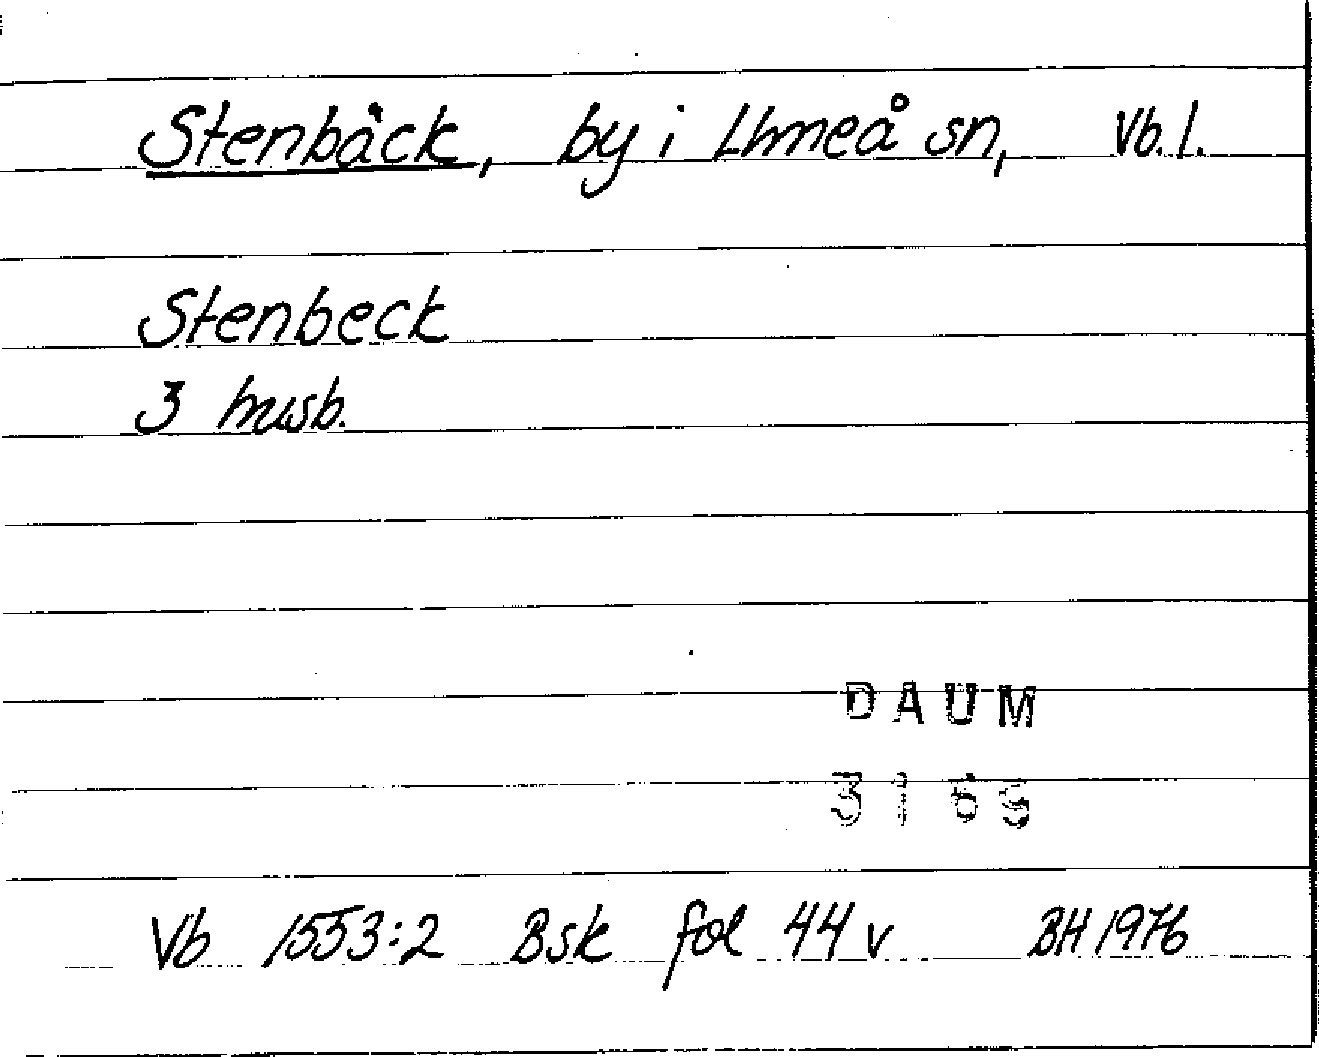 Stenbäck, by i Umeå sn, Vb. l.
Stenbeck
3 husb.
DAUM
Vb 1553:2 Bsk fol 44 v BH 1976